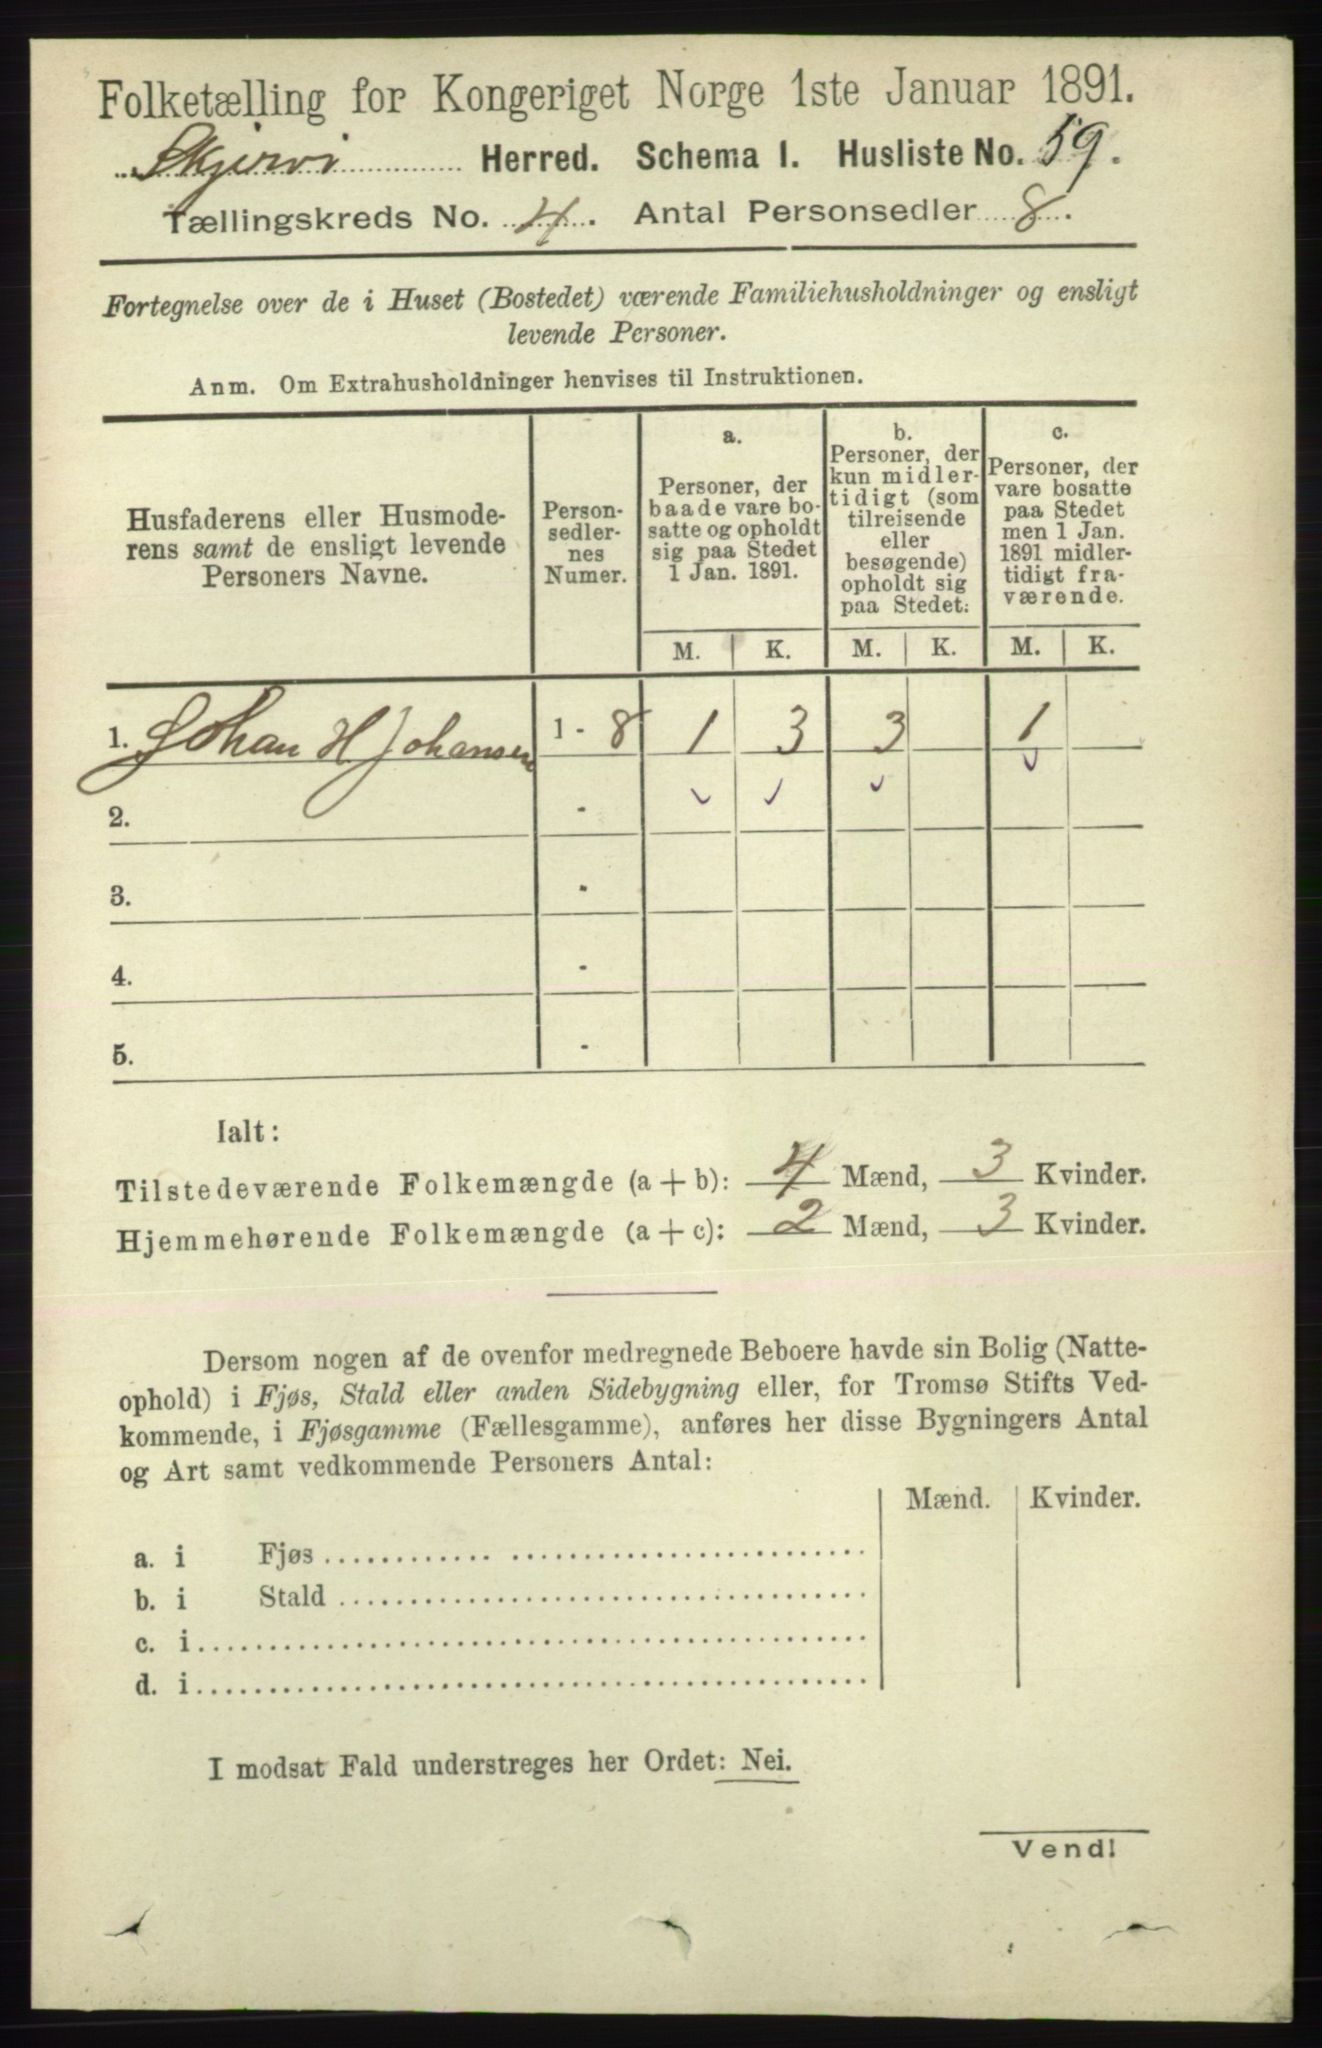 Folketælling for Kongeriget Norge 1ste Januar 1891.
Skjervi Herred. Schema I. Husliste No. 59.
Tællingskreds No. 4. Antal Personsedler 8.
Fortegnelse over de i Huset (Bostedet) værende Familiehusholdninger og ensligt
levende Personer.
Anm. Om Extrahusholdninger henvises til Instruktionen.
Husfaderens eller Husmode-
rens samt de ensligt levende
Personers Navne.
Person-
sedler-
nes
Numer.
a.
Personer, der
baade vare bo-
satte og opholdt
sig paa Stedet
1 Jan. 1891.
b.
Personer, der
kun midler-
tidigt (som
tilreisende
eller
besøgende)
opholdt sig
paa Stedet:
c.
Personer, der
vare bosatte
paa Stedet
men 1 Jan.
1891 midler-
tidigt fra-
værende.
M. K. M. K. M. K.
1. Johan H Johansen 1 - 8 1 3 3 1
2. -
3. -
4. -
5. -
Ialt:
Tilstedeværende Folkemængde (a + b): 4 Mænd, 3 Kvinder.
Hjemmehørende Folkemængde (a + c): 2 Mænd, 3 Kvinder.
Dersom nogen af de ovenfor medregnede Beboere havde sin Bolig (Natte-
ophold) i Fjøs, Stald eller anden Sidebygning eller, for Tromsø Stifts Ved-
kommende, i Fjøsgamme (Fællesgamme), anføres her disse Bygningers Antal
og Art samt vedkommende Personers Antal:
Mænd. Kvinder.
a. i Fjøs
b. i Stald
c. i
d. i
I modsat Fald understreges her Ordet: Nei.
Vend!